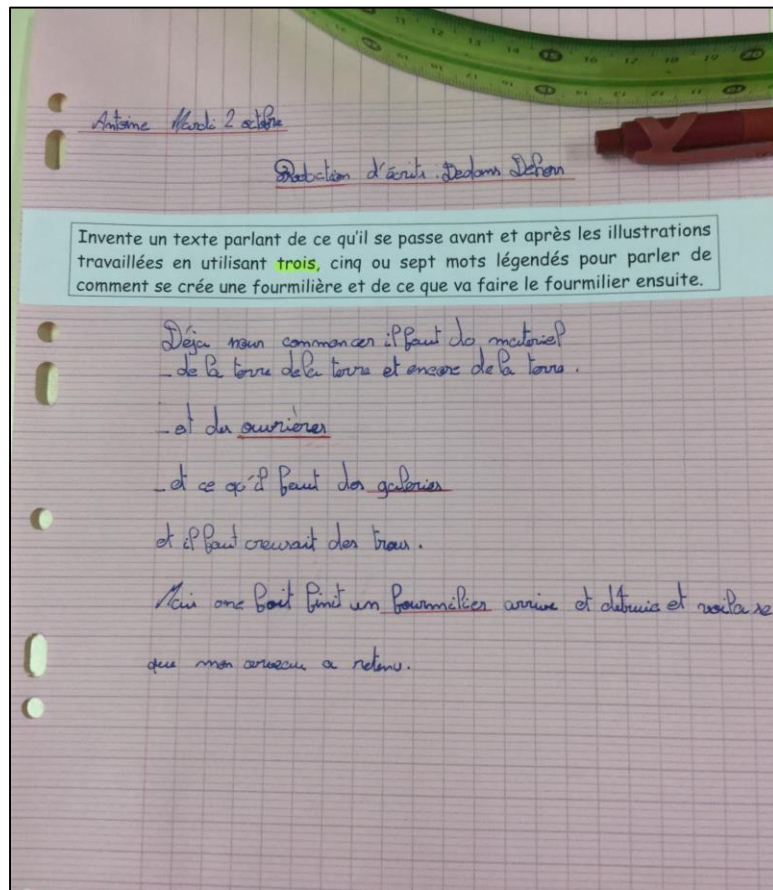 11 12 13 14 15 16 17 18 19 20
Antoine Mardi 2 octobre
Prodoction d'écrits. Dedans Dehors
Invente un texte parlant de ce qu'il se passe avant et après les illustrations
travaillées en utilisant trois, cinq ou sept mots légendés pour parler de
comment se crée une fourmilière et de ce que va faire le fourmilier ensuite.
Déja pour commencer il faut du materiel
_ de la terre de la terre et encore de la terre.
_ et des ouvrières
_ et ce qu'il faut des galeries
et il faut creusait des trous.
Mais one foit finit un fourmilier arrive et détruis et voila se
que mon cerveau a retenu.